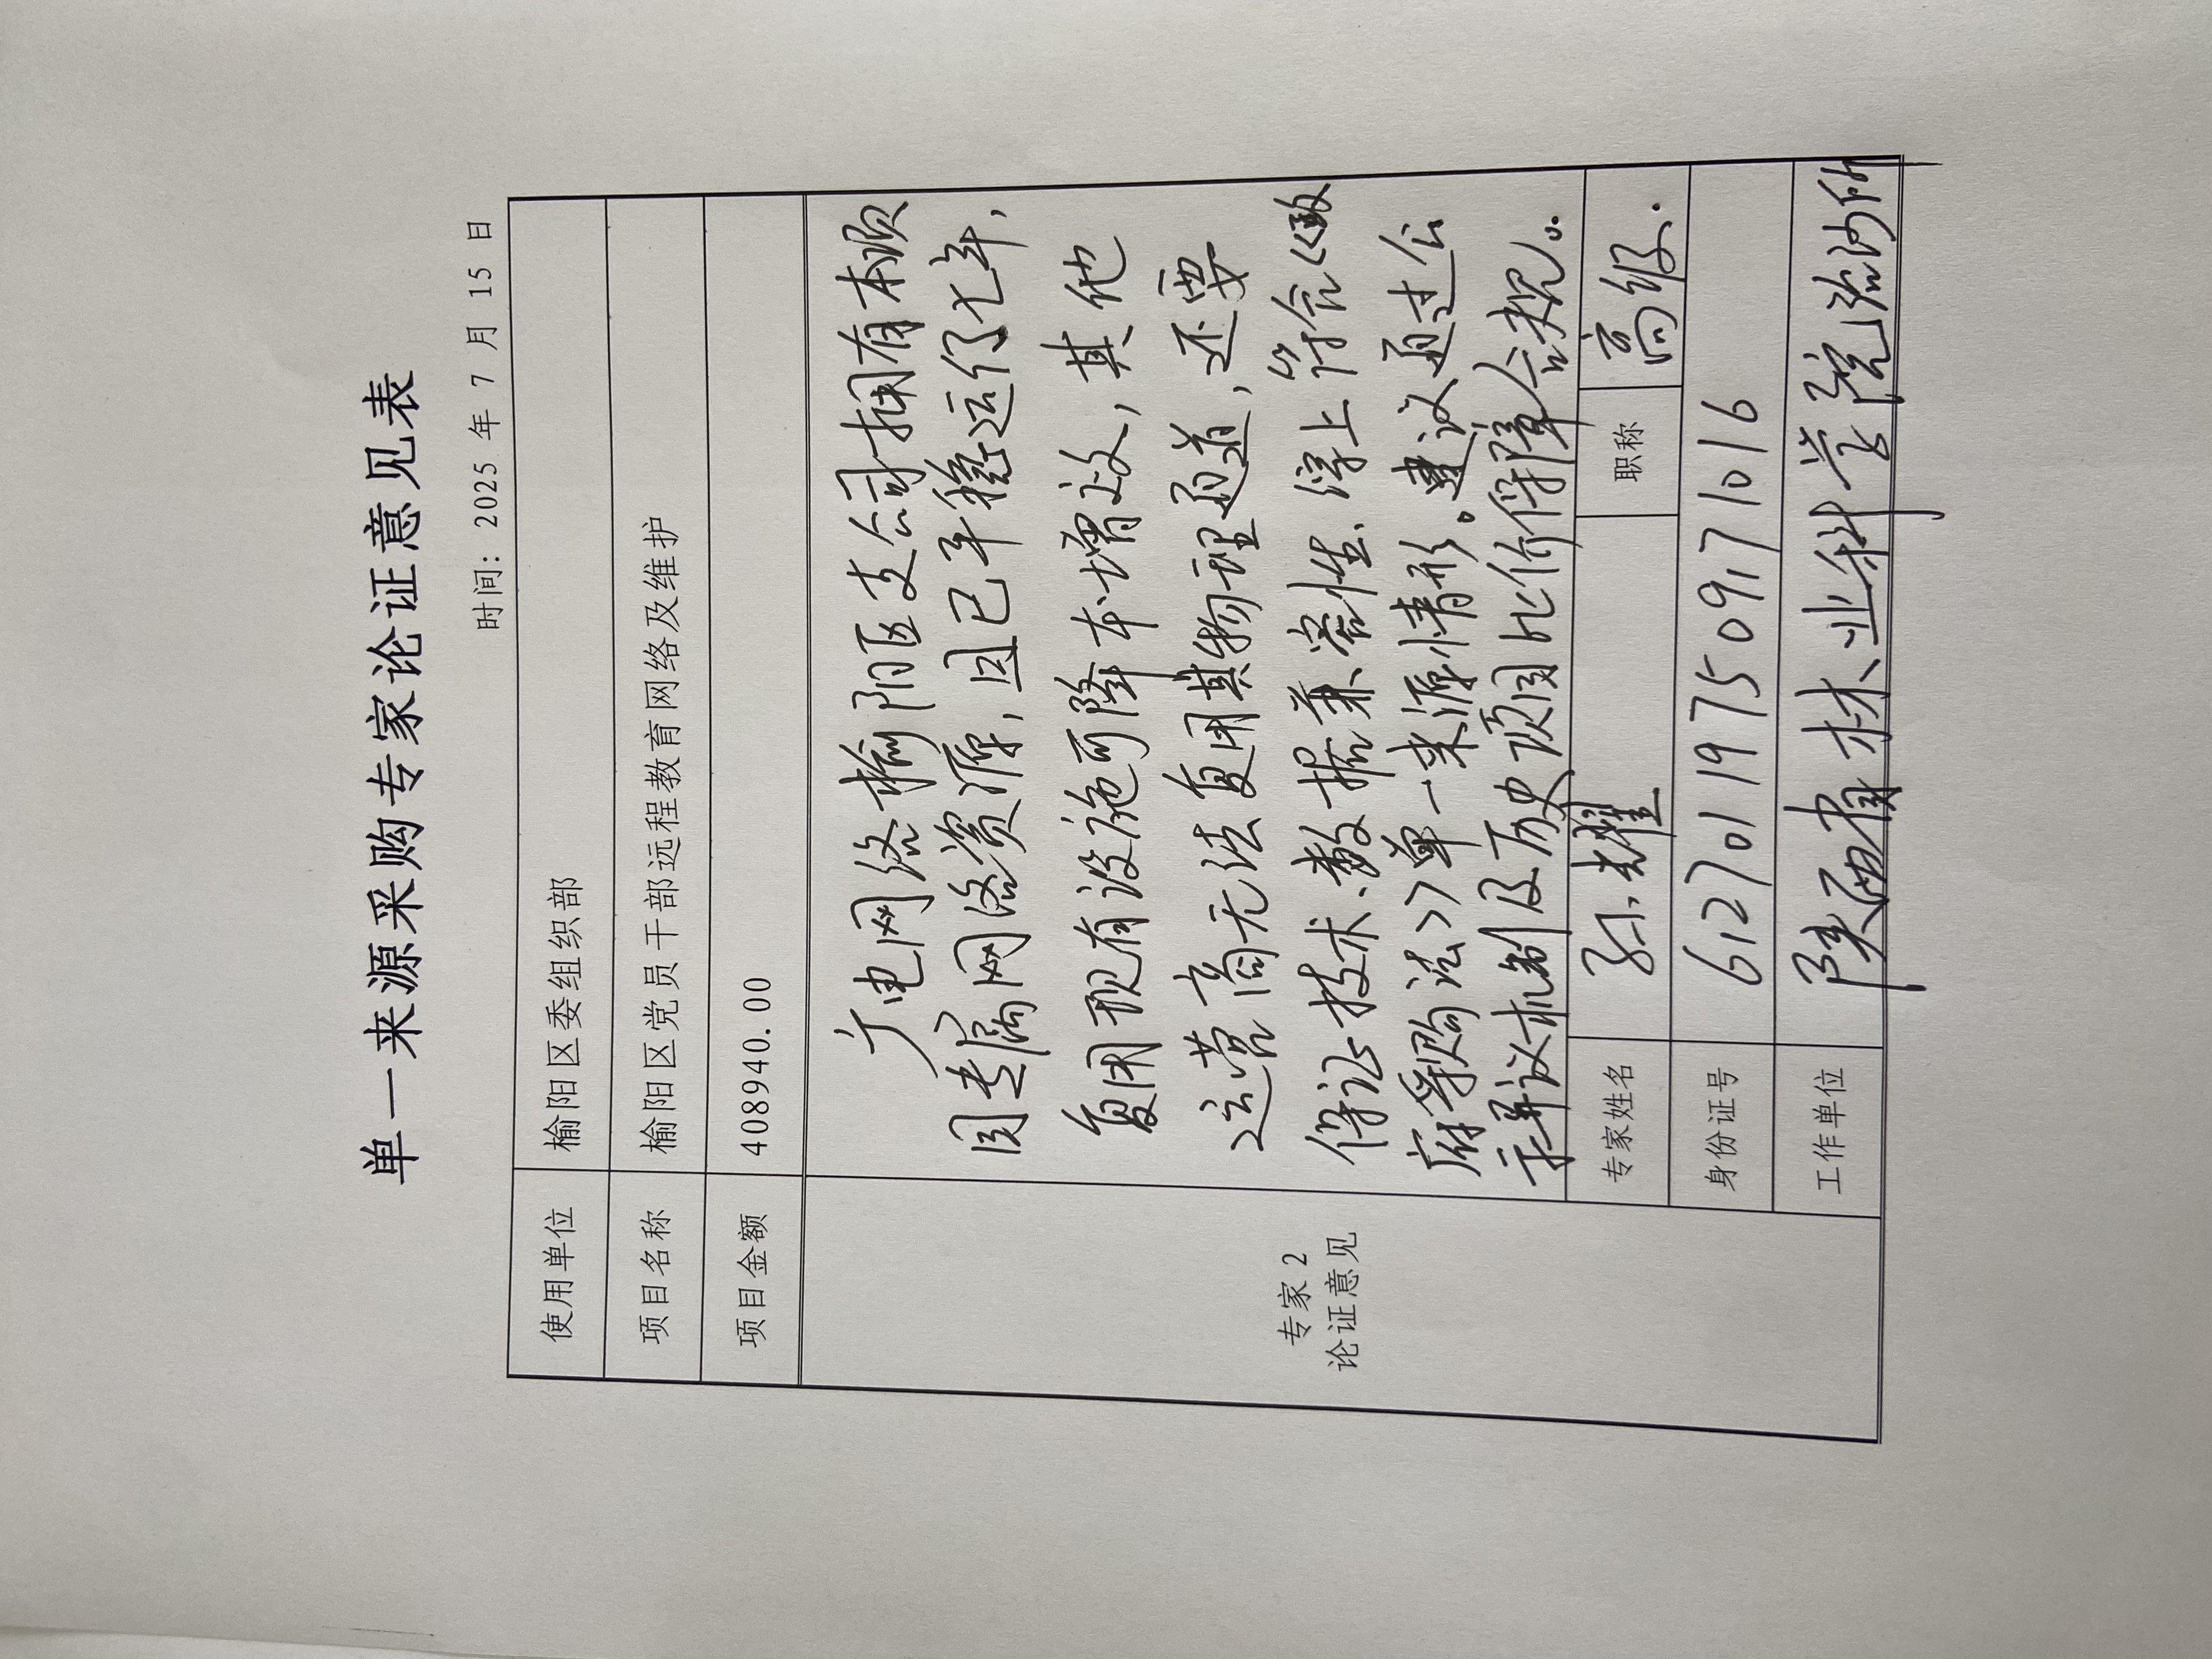 单一来源采购专家论证意见表
时间: 2025 年 7 月 15 日
使用单位 榆阳区委组织部
项目名称 榆阳区党员干部远程教育网络及维护
项目金额 408940.00
专家 2
论证意见
广电网络榆阳区支公司拥有本项
目专属网络资源,因已平稳运行七年,
复用现有设施可降本增效,其他
运营商无法复用其物理通道,还要
保证技术、数据兼容性.综上符合《政
府采购法》单一来源情形。建议通过公
示异议机制及历史项目比价保障合规。
专家姓名 孙耀 职称 高级.
身份证号 612701197509171016
工作单位 陕西省林业科学院治沙所